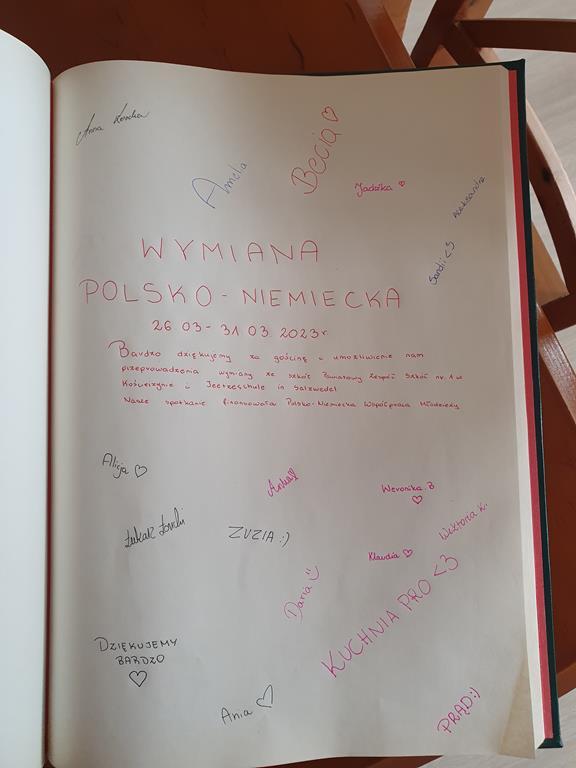 Anna
Amela
Becia ♡
Jadźka ♡
Aleksandra
Sandi <3
WYMIANA
POLSKO - NIEMIECKA
26 03 - 31 03 2023r
Bardzo dziękujemy za gościnę i umożliwienie nam
przeprowadzenia wymiany ze szkół Powiatowy Zespół Szkół nr 1 w
Kościerzynie i Jeetzeschule in Salzwedel
Nasze spotkanie finansowała Polsko-Niemiecka Współpraca Młodzieży
Alicja ♡
Weronika B
♡
Łukasz
ZUZIA :)
Wiktoria K.
Klaudia ♡
Daria
KUCHNIA PRO <3
DZIĘKUJEMY
BARDZO
♡
Ania ♡
PRĄD:)